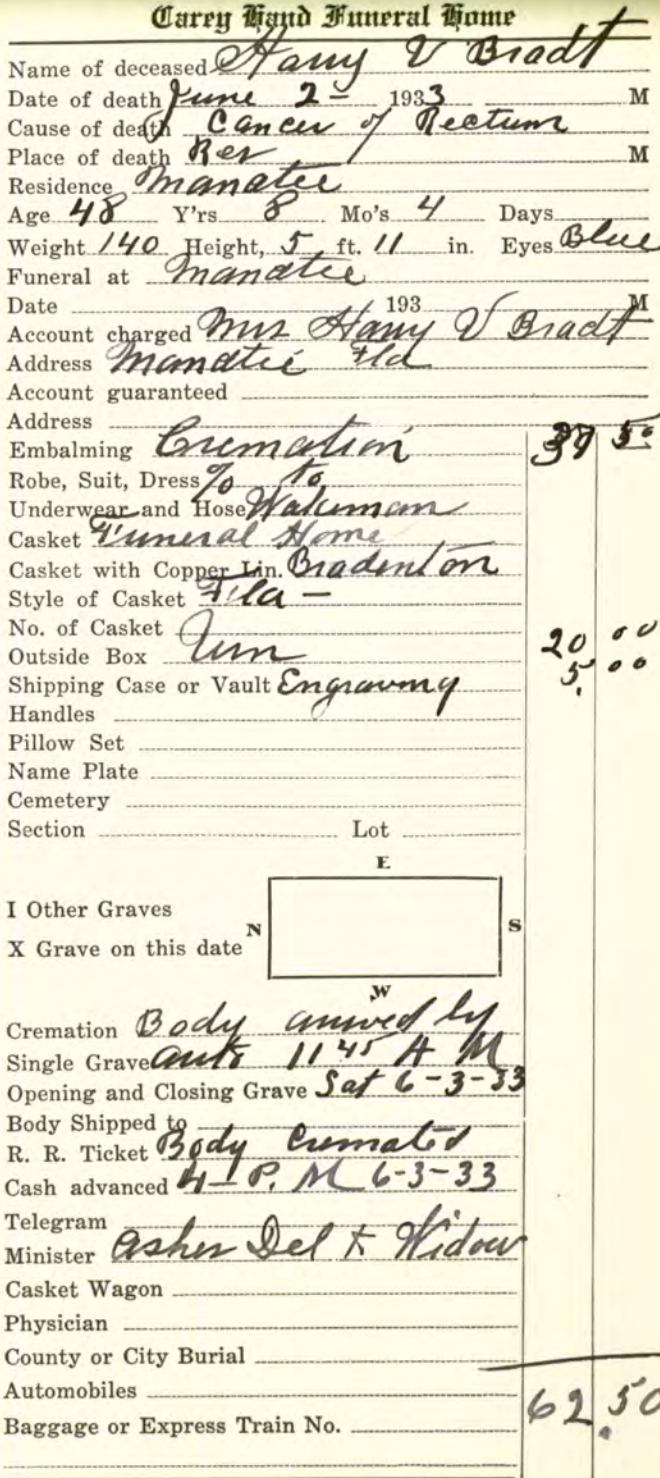 Carey Hand Funeral Home
Name of deceased Harry V Bradt
Date of death June 2 - 1933 M
Cause of death Cancer of Rectum
Place of death Res M
Residence Manatee
Age 48 Y'rs 8 Mo's 4 Days
Weight 140 Height, 5 ft. 11 in. Eyes Blue
Funeral at Manatee
Date 193 M
Account charged Mrs Harry V Bradt
Address Manatee Fla
Account guaranteed
Address
Embalming Cremation 37 50
Robe, Suit, Dress % to
Underwear and Hose Wakeman
Casket Funeral Home
Casket with Copper Lin. Bradenton
Style of Casket Fla -
No. of Casket
Outside Box Urn 20 00
Shipping Case or Vault Engraving 5.00
Handles
Pillow Set
Name Plate
Cemetery
Section Lot
E
I Other Graves
N S
X Grave on this date
W
Cremation Body arrived by
Single Grave auto 11 45 A M
Opening and Closing Grave Sat 6-3-33
Body Shipped to
R. R. Ticket Body Cremated
Cash advanced 4 - P. M 6-3-33
Telegram
Minister Ashes Del to Widow
Casket Wagon
Physician
County or City Burial
Automobiles
Baggage or Express Train No. 62.50